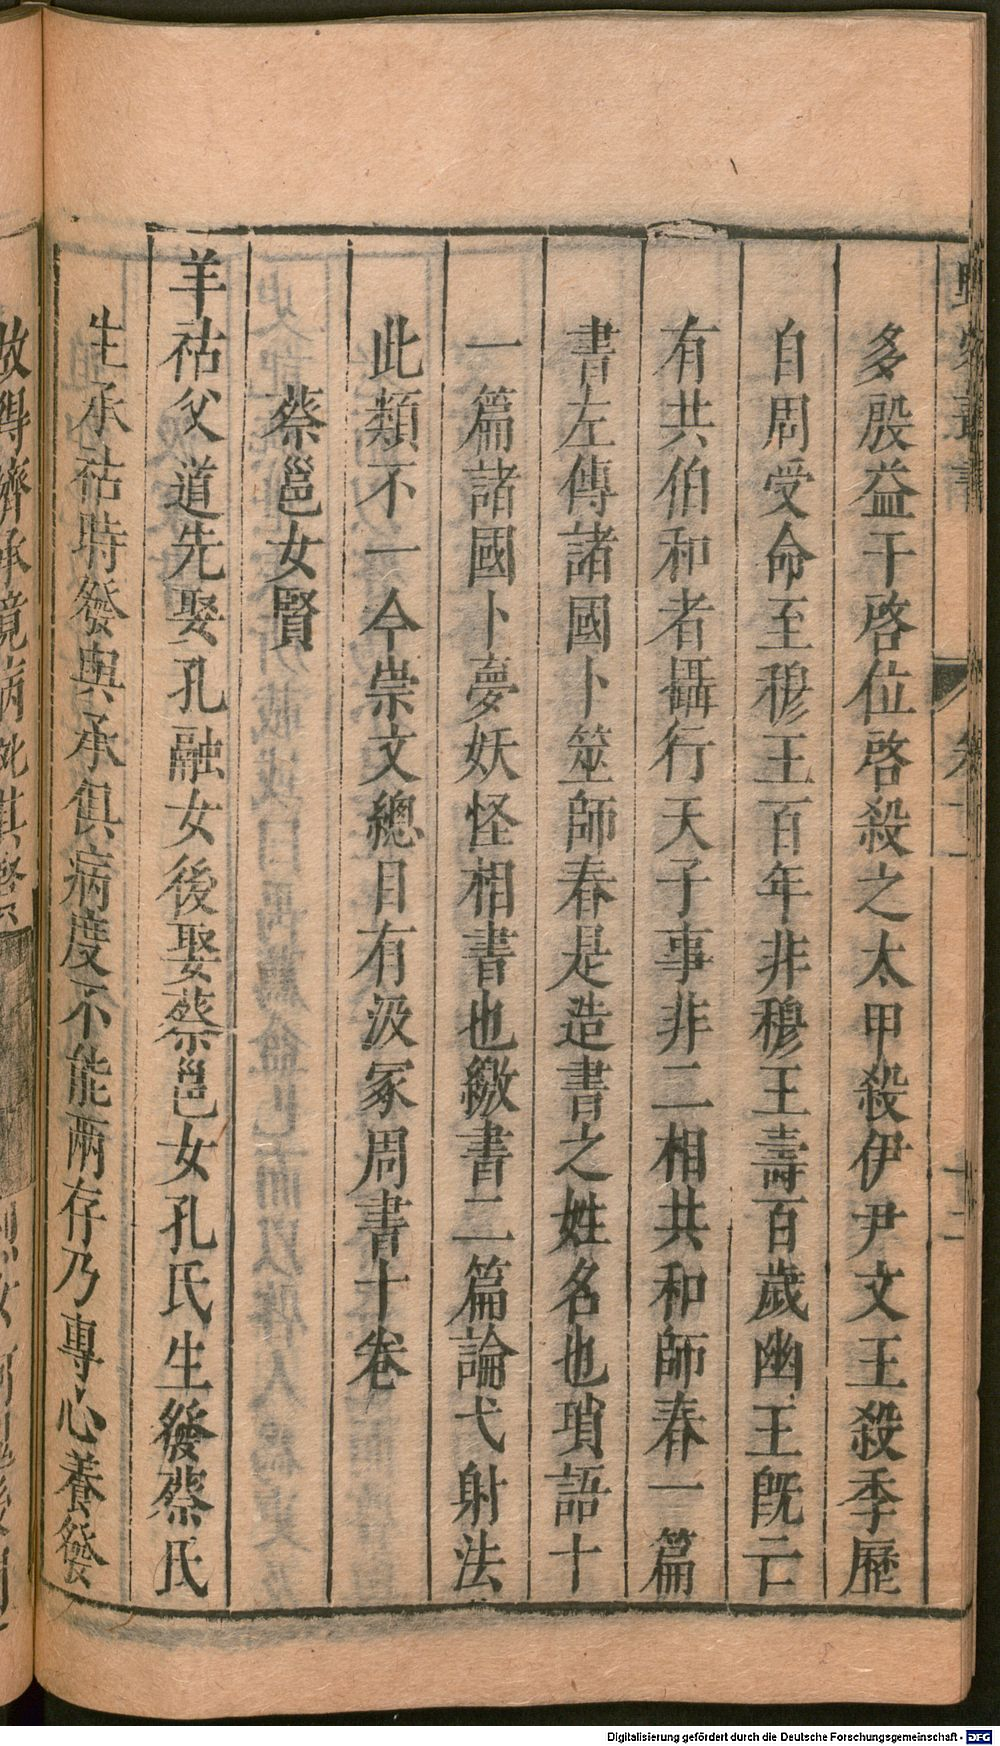 多殷益干啓位啓殺之太甲殺伊尹文王殺季歷
自周受命至穆王百年非穆王壽百歲幽王旣亡
有共伯和者攝行天子事非二相共和師春一篇
書左傳諸國卜筮師春是造書之姓名也瑣語十
一篇諸國卜夢妖怪相書也繳書二篇論弋射法
此類不一今崇文總目有汲冢周書十卷
蔡邕女賢
羊祜父道先娶孔融女後娶蔡邕女孔氏生發蔡氏
生承祜時發與承俱病度不能兩存乃專心養發
Digitalisierung gefördert durch die Deutsche Forschungsgemeinschaft - DFG